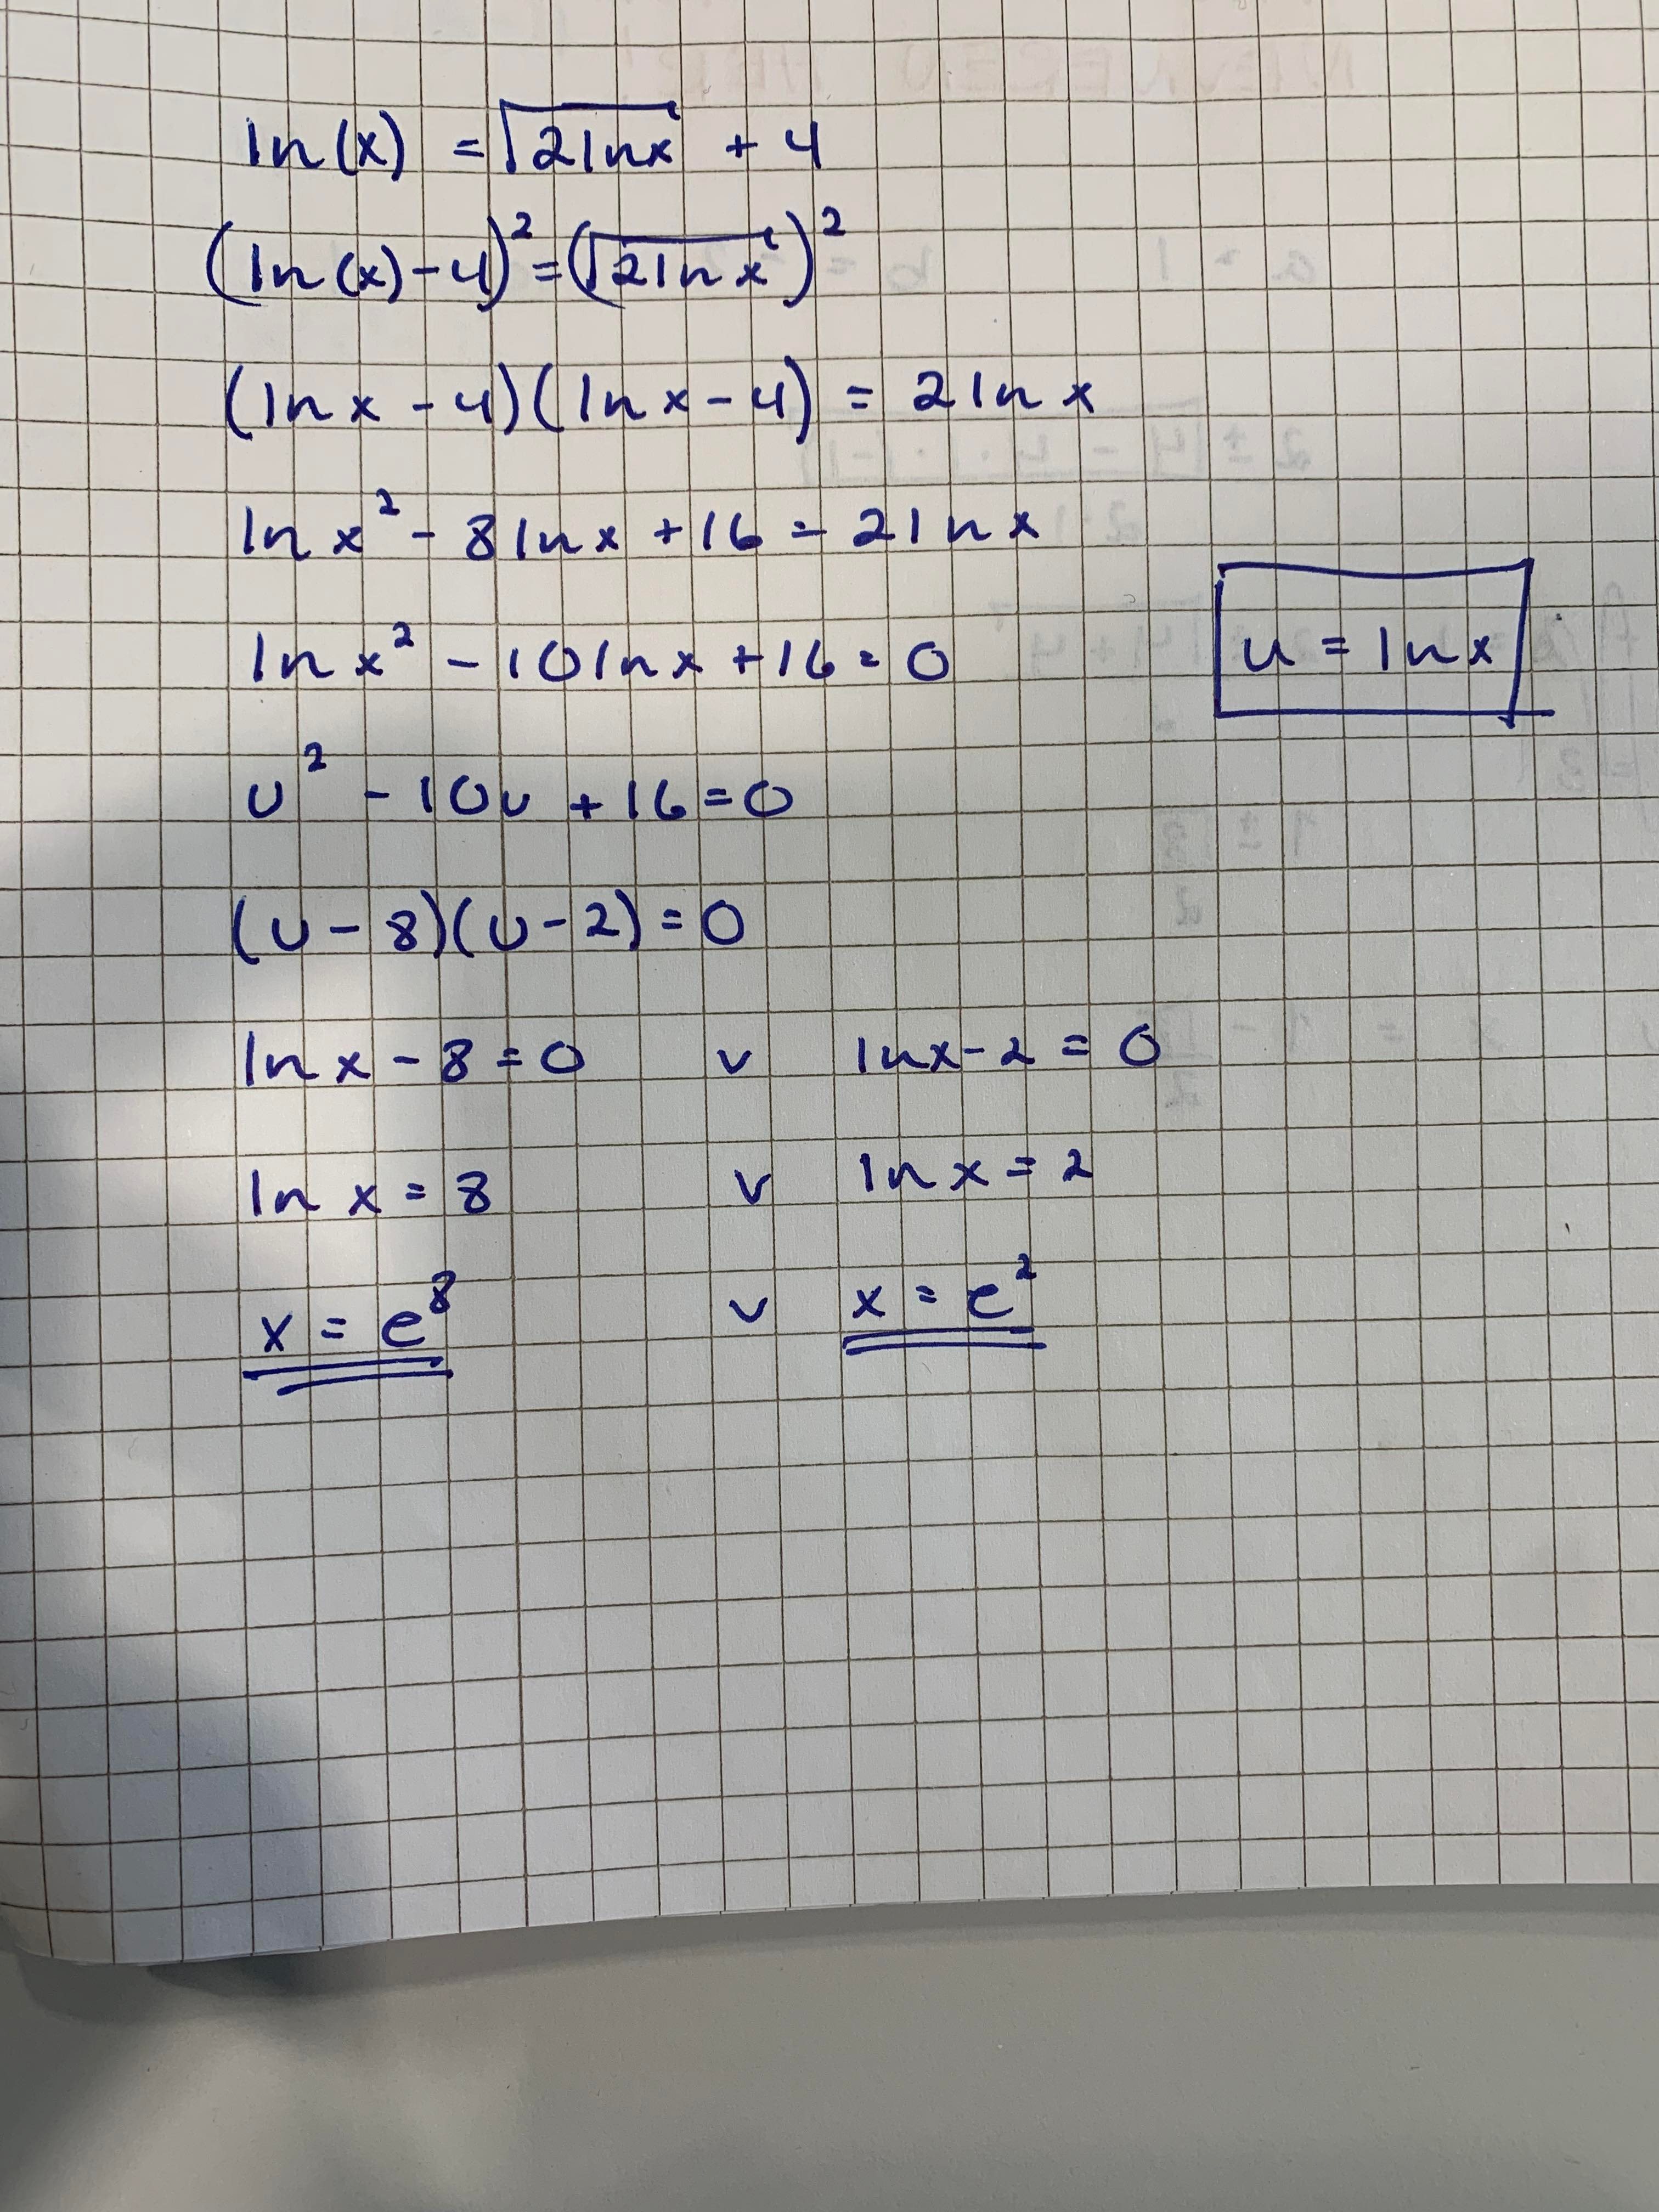 ln(x) = √2lnx + 4
(ln(x)-4)² = (√2lnx)²
(lnx-4)(lnx-4) = 2lnx
lnx² - 8lnx + 16 = 2lnx
lnx² - 10lnx + 16 = 0
u = lnx
u² - 10u + 16 = 0
(u-8)(u-2) = 0
lnx - 8 = 0 v lnx-2 = 0
lnx = 8 v lnx = 2
x = e⁸ v x = e²